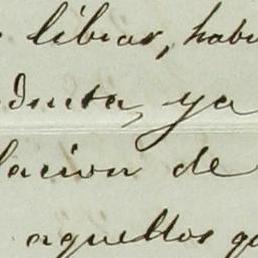 libras, habi
ducta, ya
lacion de
aquellos qu